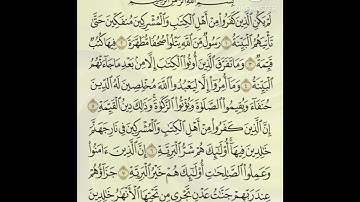 بِسْمِ اللَّهِ الرَّحْمَٰنِ الرَّحِيمِ
لَمْ يَكُنِ الَّذِينَ كَفَرُوا مِنْ أَهْلِ الْكِتَابِ وَالْمُشْرِكِينَ مُنفَكِّينَ حَتَّىٰ
تَأْتِيَهُمُ الْبَيِّنَةُ ١ رَسُولٌ مِّنَ اللَّهِ يَتْلُوا صُحُفًا مُّطَهَّرَةً ٢ فِيهَا كُتُبٌ
قَيِّمَةٌ ٣ وَمَا تَفَرَّقَ الَّذِينَ أُوتُوا الْكِتَابَ إِلَّا مِن بَعْدِ مَا جَاءَتْهُمُ
الْبَيِّنَةُ ٤ وَمَا أُمِرُوا إِلَّا لِيَعْبُدُوا اللَّهَ مُخْلِصِينَ لَهُ الدِّينَ
حُنَفَاءَ وَيُقِيمُوا الصَّلَاةَ وَيُؤْتُوا الزَّكَاةَ وَذَٰلِكَ دِينُ الْقَيِّمَةِ ٥
إِنَّ الَّذِينَ كَفَرُوا مِنْ أَهْلِ الْكِتَابِ وَالْمُشْرِكِينَ فِي نَارِ جَهَنَّمَ
خَالِدِينَ فِيهَا أُولَٰئِكَ هُمْ شَرُّ الْبَرِيَّةِ ٦ إِنَّ الَّذِينَ ءَامَنُوا
وَعَمِلُوا الصَّالِحَاتِ أُولَٰئِكَ هُمْ خَيْرُ الْبَرِيَّةِ ٧ جَزَاؤُهُمْ
عِندَ رَبِّهِمْ جَنَّاتُ عَدْنٍ تَجْرِي مِن تَحْتِهَا الْأَنْهَارُ خَالِدِينَ